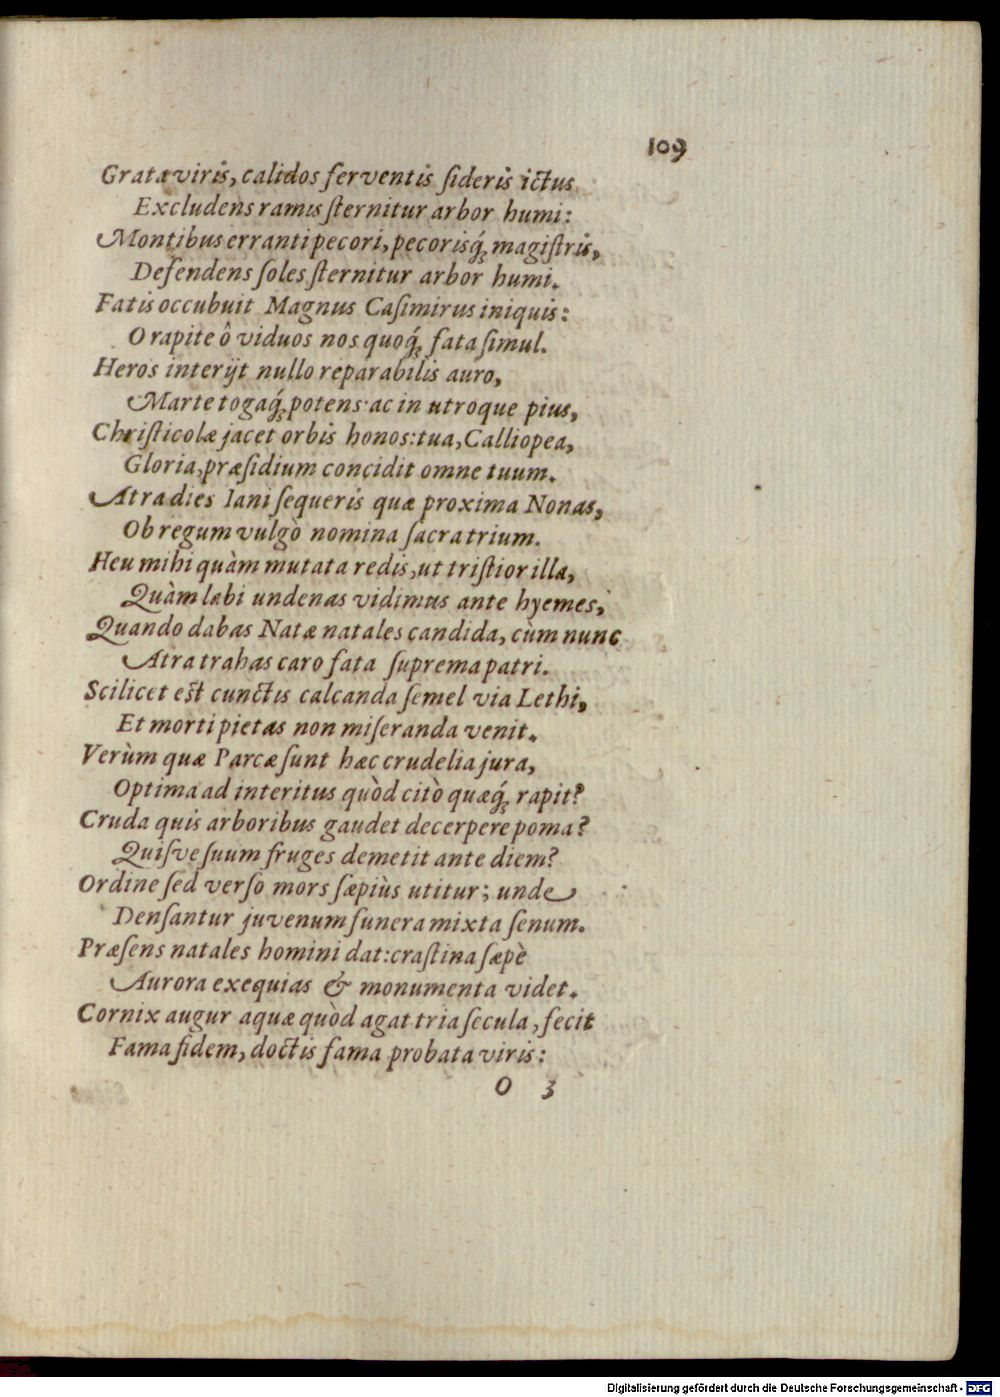 109
Grata viris, calidos ferventis sideris ictus
Excludens ramis sternitur arbor humi:
Montibus erranti pecori, pecorisq́; magistris,
Defendens soles sternitur arbor humi.
Fatis occubuit Magnus Casimirus iniquis:
O rapite ô viduos nos quoq́; fata simul.
Heros interijt nullo reparabilis auro,
Marte togaq́; potens: ac in utroque pius,
Christicolæ jacet orbis honos: tua, Calliopea,
Gloria, præsidium concidit omne tuum.
Atra dies Iani sequeris quæ proxima Nonas,
Ob regum vulgò nomina sacra trium.
Heu mihi quàm mutata redis, ut tristior illa,
Quàm labi undenas vidimus ante hyemes,
Quando dabas Natæ natales candida, cùm nunc
Atra trahas caro fata suprema patri.
Scilicet est cunctis calcanda semel via Lethi,
Et morti pietas non miseranda venit.
Verùm quæ Parcæ sunt hæc crudelia jura,
Optima ad interitus quòd citò quæq́; rapit?
Cruda quis arboribus gaudet decerpere poma?
Quisve suum fruges demetit ante diem?
Ordine sed verso mors sæpiùs utitur; unde
Densantur juvenum funera mixta senum.
Præsens natales homini dat: crastina sæpè
Aurora exequias & monumenta videt.
Cornix augur aquæ quòd agat tria secula, fecit
Fama fidem, doctis fama probata viris:
O 3
Digitalisierung gefördert durch die Deutsche Forschungsgemeinschaft - DFG